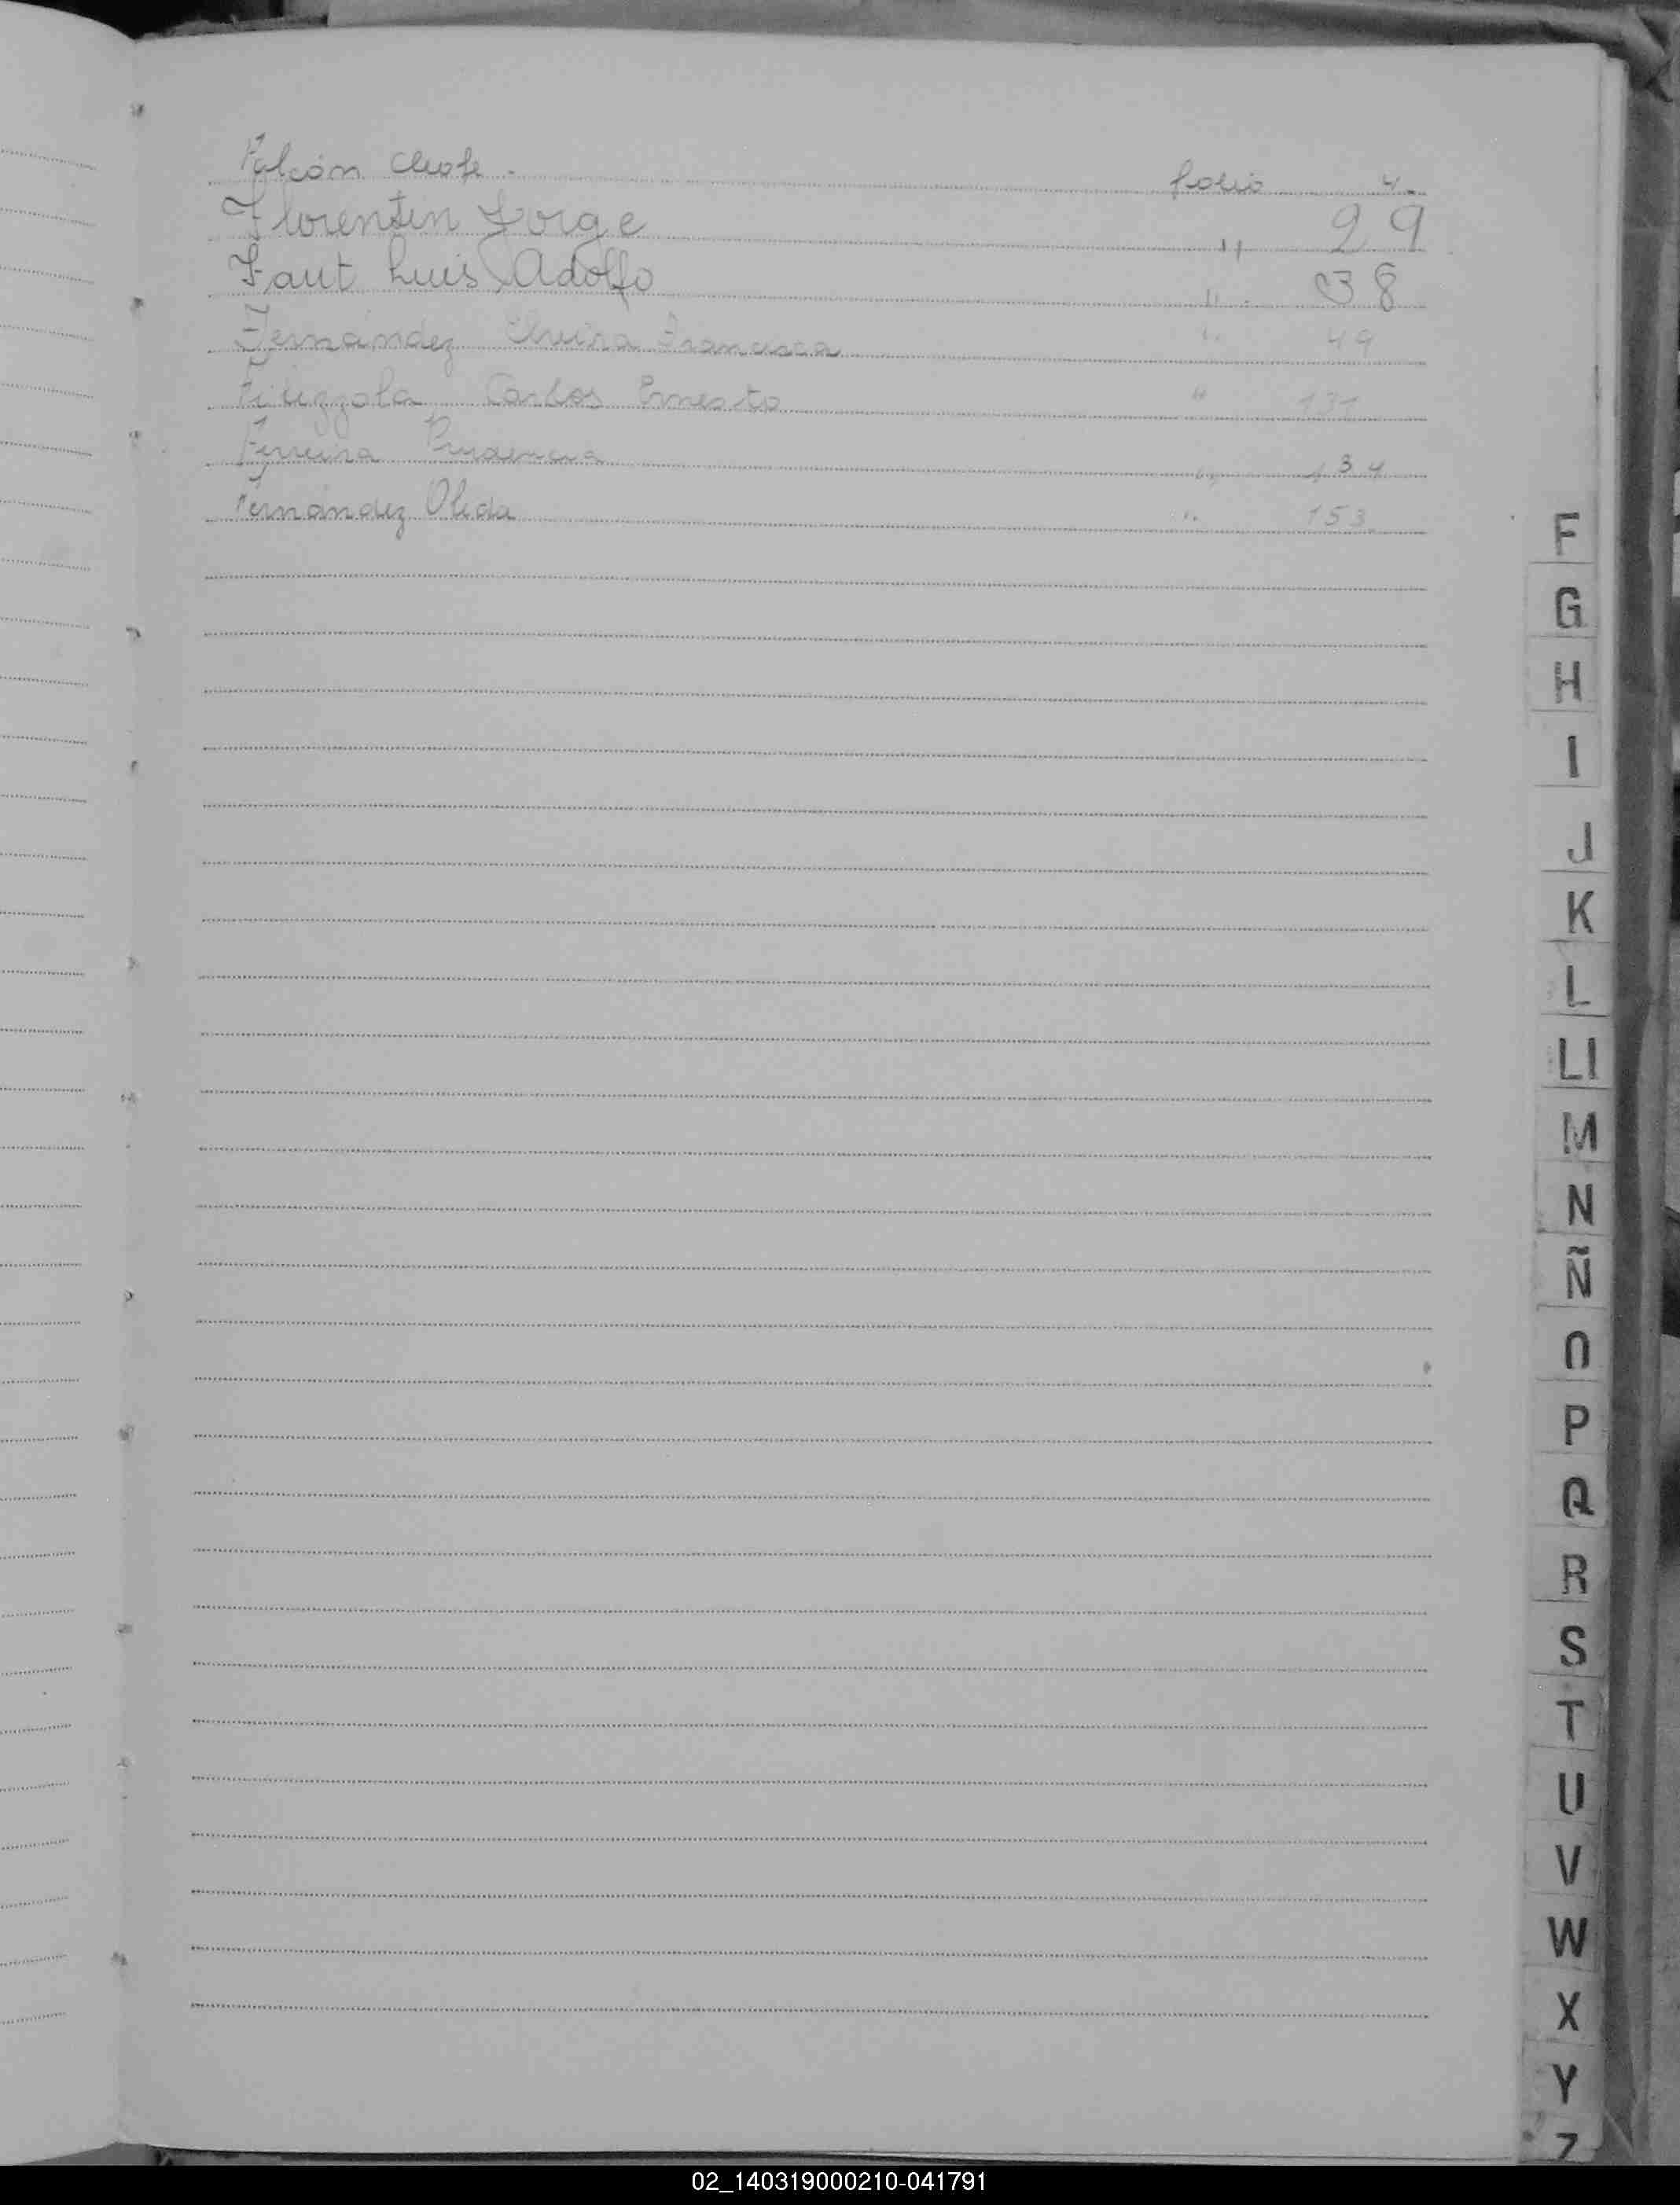 Falcón Cleofe. folio 4.
Florentin Jorge " 29
Faut Luis Adolfo " 38
Fernández Elvira Francisca " 49
Carlos Ernesto " 131
Ferreira Prudencia " 134
Fernández Oleda " 153
F
G
H
I
J
K
L
Ll
M
N
Ñ
O
P
Q
R
S
T
U
V
W
X
Y
Z
02_140319000210-041791